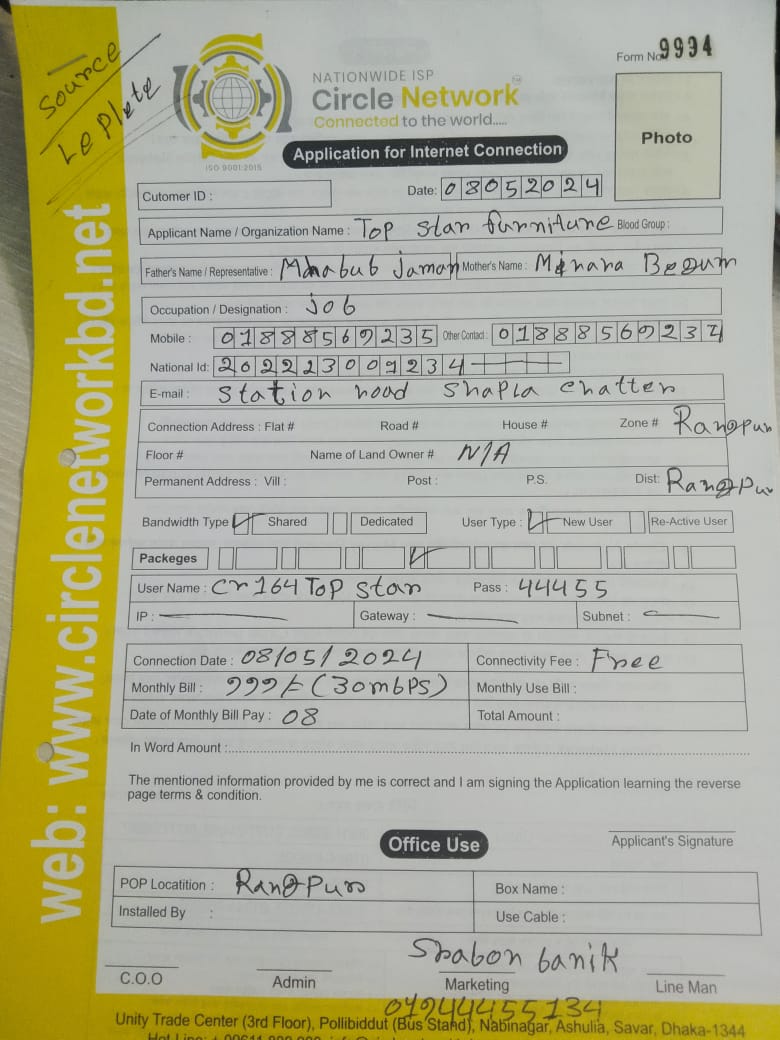 Source
Le Plete
Form No. 9994
NATIONWIDE ISP
Circle Network
Connected to the world.....
ISO 9001:2015
Photo
Application for Internet Connection
Cutomer ID :
Date: 08052024
Applicant Name / Organization Name : Top Star furniture Blood Group :
Father's Name / Representative : Mhabub jaman Mother's Name : Minara Begum
Occupation / Designation : job
Mobile : 01888569235 Other Contact : 01888569237
National Id: 2022230091234
E-mail : Station road Shapla chatter
Connection Address : Flat # Road # House # Zone # Rangpur
Floor # Name of Land Owner # N/A
Permanent Address : Vill : Post : P.S. Dist: Rangpur
Bandwidth Type ✓ Shared Dedicated User Type : ✓ New User Re-Active User
Packeges ✓
User Name : Cr164 Top Star Pass : 44455
IP : — Gateway : — Subnet : —
Connection Date : 08/05/2024 Connectivity Fee : Free
Monthly Bill : 999/= (30mbPS) Monthly Use Bill :
Date of Monthly Bill Pay : 08 Total Amount :
In Word Amount :
The mentioned information provided by me is correct and I am signing the Application learning the reverse
page terms & condition.
Applicant's Signature
Office Use
POP Locatition : Rangpur Box Name :
Installed By : Use Cable :
Shabon banik
C.O.O Admin Marketing Line Man
01944455134
Unity Trade Center (3rd Floor), Pollibiddut (Bus Stand), Nabinagar, Ashulia, Savar, Dhaka-1344
web: www.circlenetworkbd.net